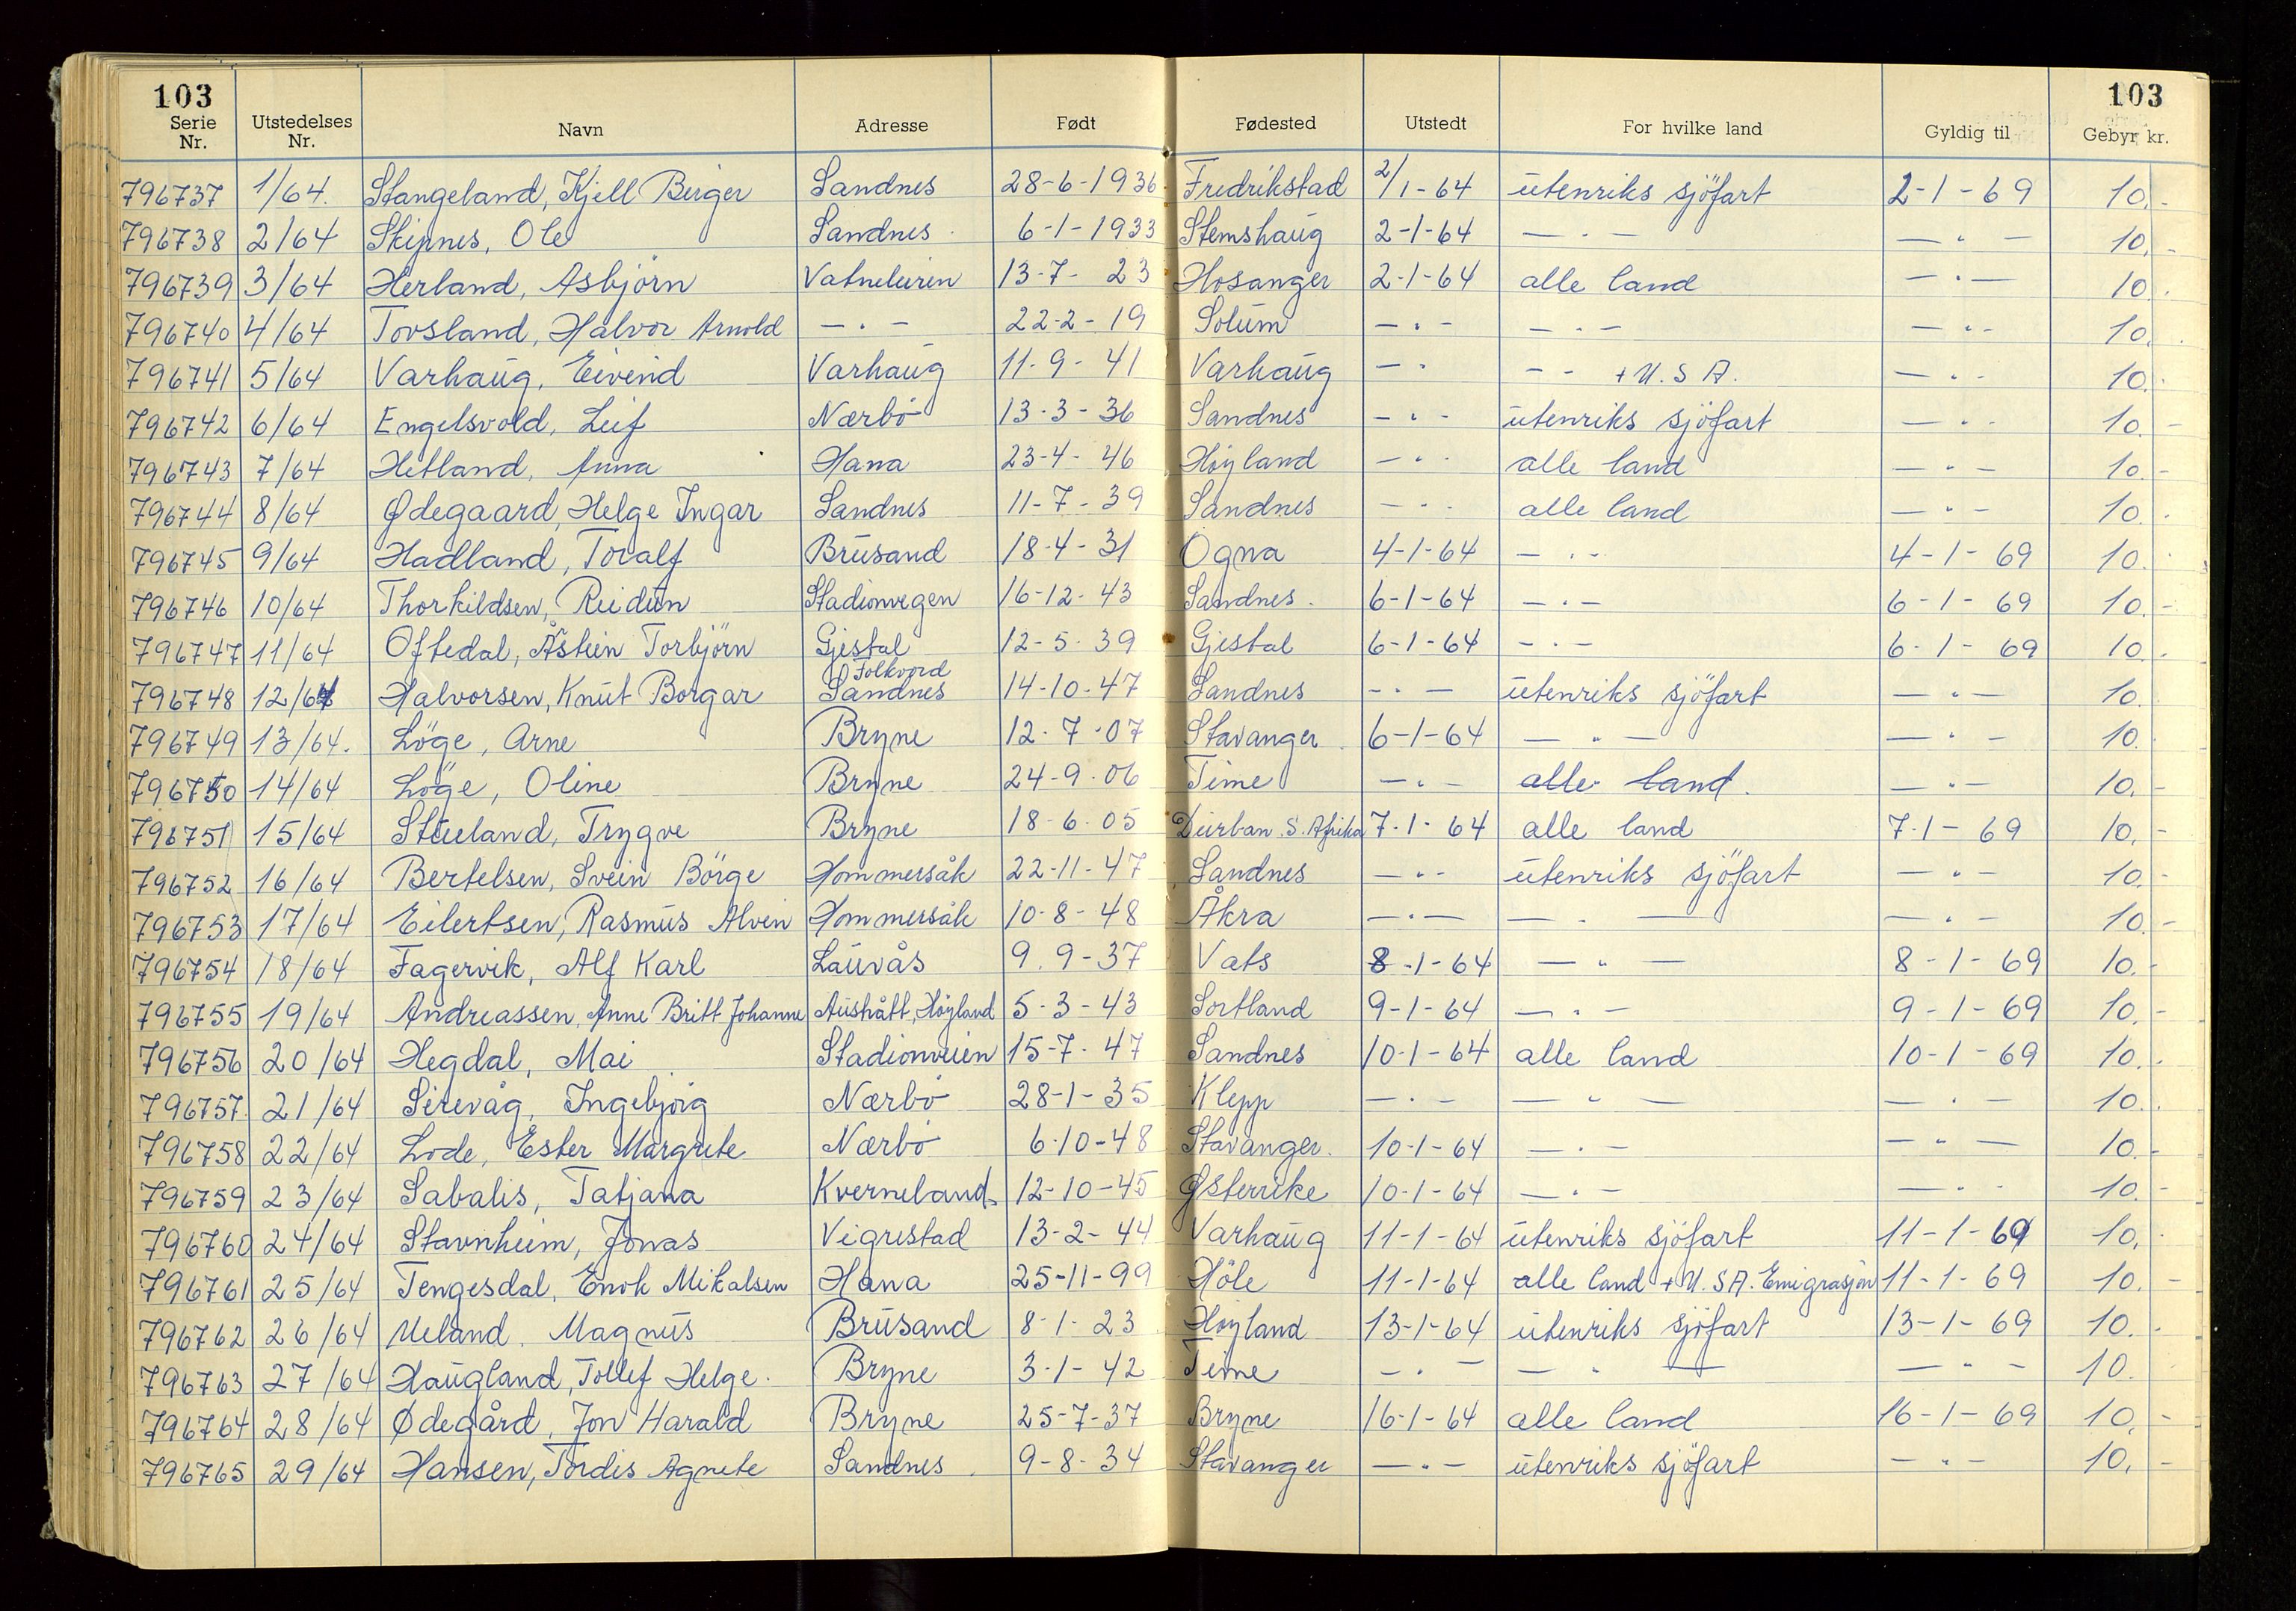 103 103
Serie Nr. Utstedelses Nr. Navn Adresse Født Fødested Utstedt For hvilke land Gyldig til Gebyr kr.
796737 1/64. Stangeland, Kjell Birger Sandnes 28-6-1936 Fredrikstad 2/1-64 utenriks sjöfart 2-1-69 10.-
796738 2/64 Skipnes, Ole Sandnes. 6-1-1933 Stemshaug 2-1-64 — " — — " — 10.-
796739 3/64 Herland, Asbjörn Vatneleiren 13-7-23 Hosanger 2-1-64 alle land — " — 10.
796740 4/64 Tovsland, Halvor Arnold — " — 22-2-19 Solum — " — — " — — " — 10.
796741 5/64 Varhaug, Eivind Varhaug 11-9-41 Varhaug — " - - + U.S.A. — " - 10.
796742 6/64 Engelsvold, Leif Nærbö 13-3-36 Sandnes — " - utenriks sjöfart — " - 10.-
796743 7/64 Hetland, Anna Hana 23-4-46 Höyland — " - alle land — " — 10.-
796744 8/64 Ødegaard, Helge Ingar Sandnes 11-7-39 Sandnes — " - alle land — " — 10.
796745 9/64 Hadland, Toralf Brusand 18-4-31 Ogna 4-1-64 — " - 4-1-69 10.
796746 10/64 Thorkildsen, Reidun Stadionvegen 16-12-43 Sandnes. 6-1-64 — " — 6-1-69 10.-
796747 11/64 Oftedal, Åstein Torbjörn Gjestal 12-5-39 Gjestal 6-1-64 — " — 6-1-69 10.
796748 12/64 Halvorsen, Knut Borgar Folkvord Sandnes 14-10-47 Sandnes — " — utenriks sjöfart — " — 10.
796749 13/64. Löge, Arne Bryne 12-7-07 Stavanger. 6-1-64 — " — — " — 10.
796750 14/64 Löge, Oline Bryne 24-9-06 Time — " — alle land. — " — 10.-
796751 15/64 Stueland, Trygve Bryne 18-6-05 Durban. S. Afrika 7-1-64 alle land 7-1-69 10.-
796752 16/64 Bertelsen, Svein Börge Hommersåk 22-11-47 Sandnes — " - utenriks sjöfart — " — 10.-
796753 17/64 Eilertsen, Rasmus Alvin Hommersåk 10-8-48 Åkra — " — — " — — " — 10.-
796754 18/64 Fagervik, Alf Karl Lauvås 9.9-37 Vats 8-1-64 — " — 8-1-69 10.-
796755 19/64 Andreassen, Anne Britt Johanne Austrått, Höyland 5-3-43 Sortland 9-1-64 — " — 9-1-69 10.-
796756 20/64 Hegdal, Mai Stadionveien 15-7-47 Sandnes 10-1-64 alle land 10-1-69 10.
796757 21/64 Sirevåg, Ingebjörg Nærbö 28-1-35 Klepp — " — — " — — " — 10.
796758 22/64 Lode, Ester Margrete Nærbö 6-10-48 Stavanger. 10-1-64 — " — — " — 10.-
796759 23/64 Sabalis, Tatjana Kverneland. 12-10-45 Østerrike 10-1-64 — " — — " - 10.-
796760 24/64 Stavnheim, Jonas Vigrestad 13-2-44 Varhaug 11-1-64 utenriks sjöfart 11-1-69 10.
796761 25/64 Tengesdal, Enok Mikalsen Hana 25-11-99 Höle 11-1-64 alle land + U.SA. Emigrasjon 11-1-69 10.-
796762 26/64 Ueland. Magnus Brusand 8-1-23 Höyland 13-1-64 utenriks sjöfart 13-1-69 10.-
796763 27/64 Haugland, Tollef Helge. Bryne 3-1-42 Time — " — — " — — " — 10.
796764 28/64 Ødegård, Jon Harald Bryne 25-7-37 Bryne 16-1-64 alle land 16-1-69 10.-
796765 29/64 Hansen, Tordis Agnete Sandnes. 9-8-34 Stavanger — " — utenriks sjöfart — " — 10.-